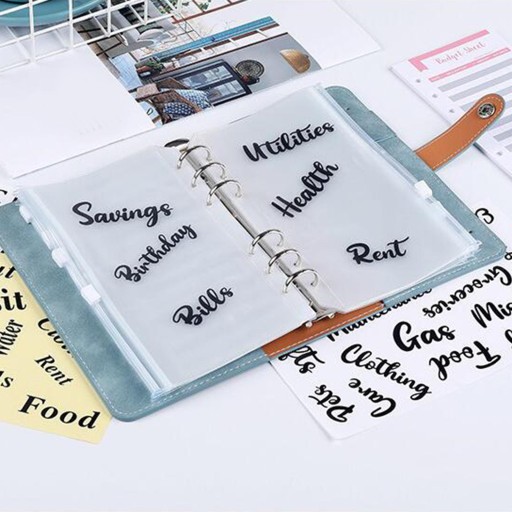 Budget Sheet
Utilities
Health
Rent
Savings
Birthday
Bills
Water
Rent
Food
Groceries
Gas
Food
Clothing
Care
Pets